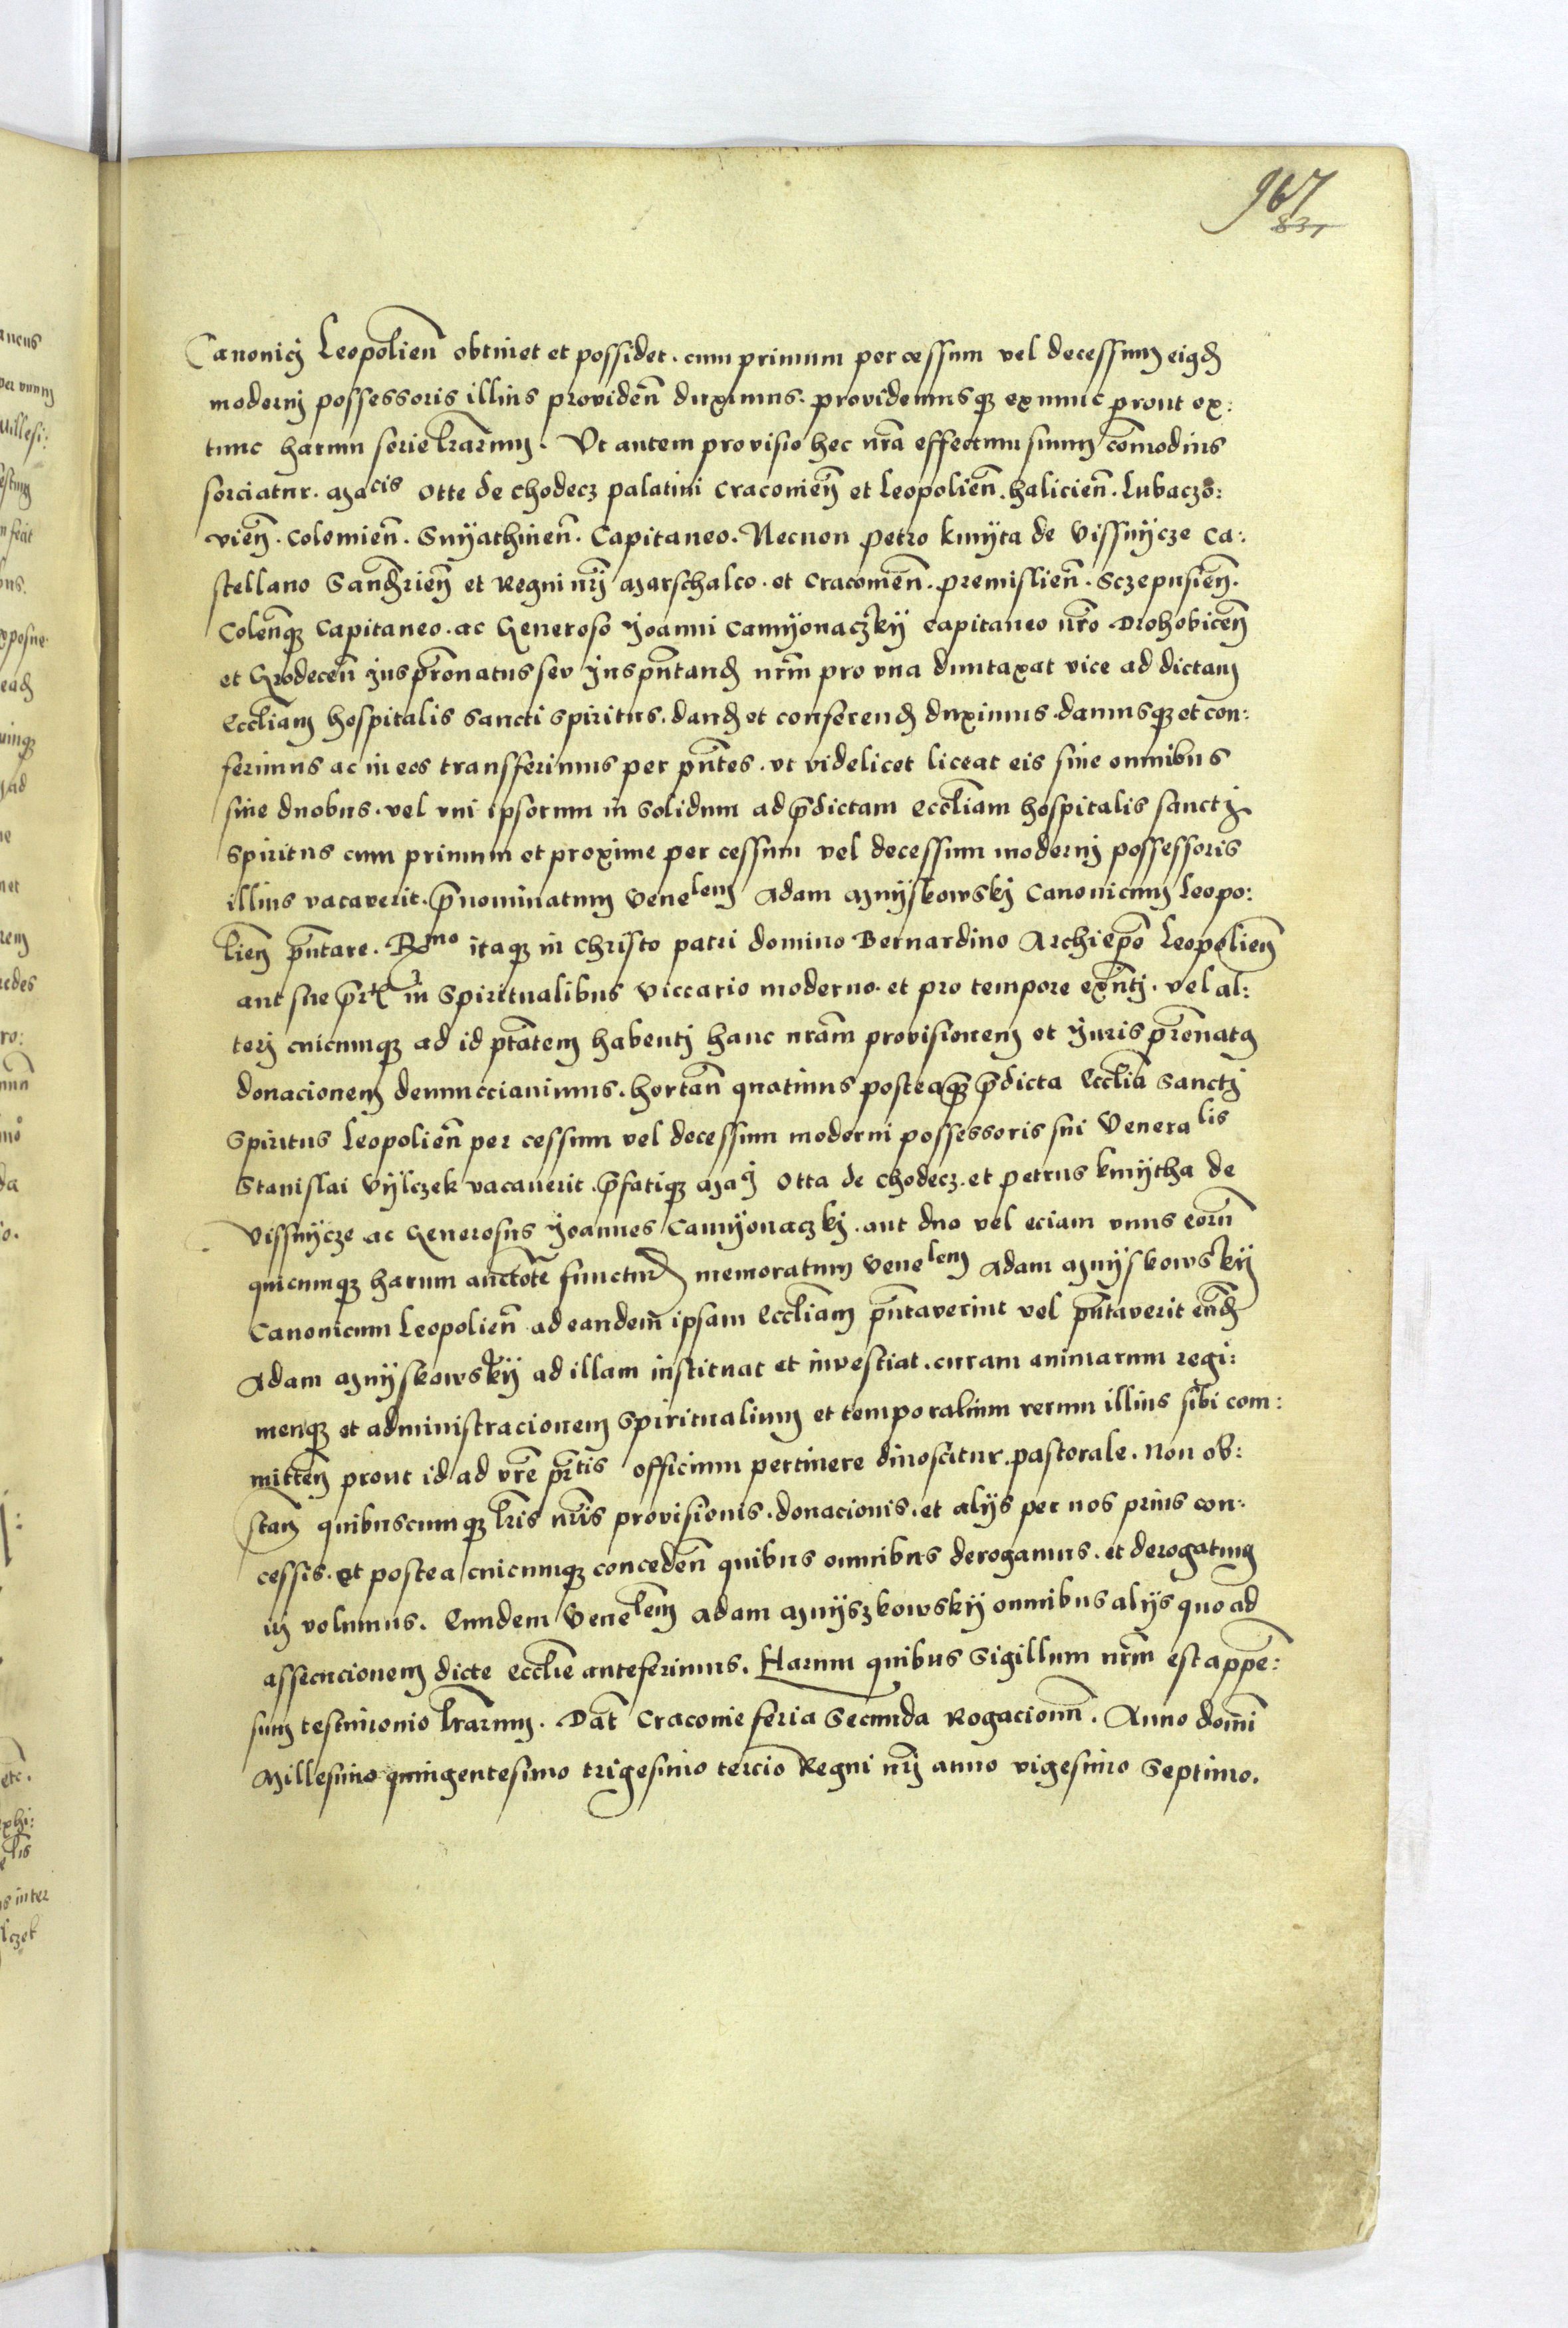 967
831
Canonicj Leopolien̄ obtinet et possidet. cum primum per cessum vel decessum eiꝰd
modernj possessoris illius providen̄ duximus. providemusqꝫ ex nunc prout ex:
tunc harum serie lr̄arum. Ut autem provisio hec nr̄a effectum suum com̄odius
sorciatur. Macis Otte de Chodecz palatini Cracovien̄ et Leopolien̄. Halicien̄. Lubaczo:
vien̄. Colomien̄. Snyathinen̄. Capitaneo. Necnon Petro Kmyta de Vissnycze Ca:
stellano Sandr̄ien̄ et Regni nrj̄ Marschalco. et Cracovien̄. Premislien̄. Sczepusien̄.
Colen̄qꝫ Capitaneo. ac Generoso Joanni Camyonaczky capitaneo nr̄o Drohobicen̄
et Grodecen̄ Jus pr̄onatus seu Jus pn̄tand nrm̄ pro una dumtaxat vice ad dictam
Eccl̄iam hospitalis Sancti Spiritus. dand et conferend duximus. damusqꝫ et con:
ferimus ac in eos transferimus per pn̄tes. ut videlicet liceat eis sive omnibus
sive duobus. vel uni ipsorum in solidum ad p̄dictam eccl̄iam hospitalis sanctj
Spiritus cum primum et proxime per cessum vel decessum modernj possessoris
illius vacaverit. p̄nominatum Venelem Adam Myskowskj Canonicum Leopo:
lien̄ pn̄tare. Rmo itaqꝫ in Christo patri domino Bernardino Archiepō Leopolien̄
aut sue pr̄t in Spiritualibus Viccario moderno. et pro tempore exn̄tj. vel al:
terj cuicumqꝫ ad id ptāt̄em habentj hanc nrām provisionem et Juris pr̄onatꝰ
donacionem denuncciavimus. hortan̄ quatinus posteaqꝫ p̄dicta Eccl̄ia Sanctj
Spiritus Leopolien̄ per cessum vel decessum moderni possessoris sui Veneralis
Stanislai Vylczek vacaverit. p̄fatiqꝫ Macj Otta de Chodecz. et Petrus Kmytha de
Vissnycze ac Generosus Joannes Camyonaczkj. aut duo vel eciam unus eorū
quicumqꝫ harum auctote functur memoratum Venelem Adam Myskowsky
Canonicum Leopolien̄ ad eandem̄ ipsam Eccl̄iam pn̄taverint vel pn̄taverit eun̄d
Adam Myskowsky ad illam instituat et investiat. curam animarum regi:
menqꝫ et administracionem Spiritualium et temporalium rerum illius sibi com:
mitten̄ prout id ad vr̄e pr̄tis officium pertinere dinoscitur. pastorale. Non ob:
stan̄ quibuscumqꝫ lr̄is nr̄is provisionis. donacionis. et alijs per nos prius con:
cessis. et postea cuicumqꝫ conceden̄ quibus omnibus derogamus. et derogatum
irj volumus. Eundem Venelem Adam Myszkowsky omnibus alijs quo ad
assecucionem dicte eccl̄ie anteferimus. Harum quibus Sigillum nrm̄ est appe̅:
sum testimonio lr̄arum. Dat̄ Cracovie feria Secunda Rogacionū. Anno domi̅
Millesimo quingentesimo trigesimo tercio Regni nrj̄ anno vigesimo Septimo.